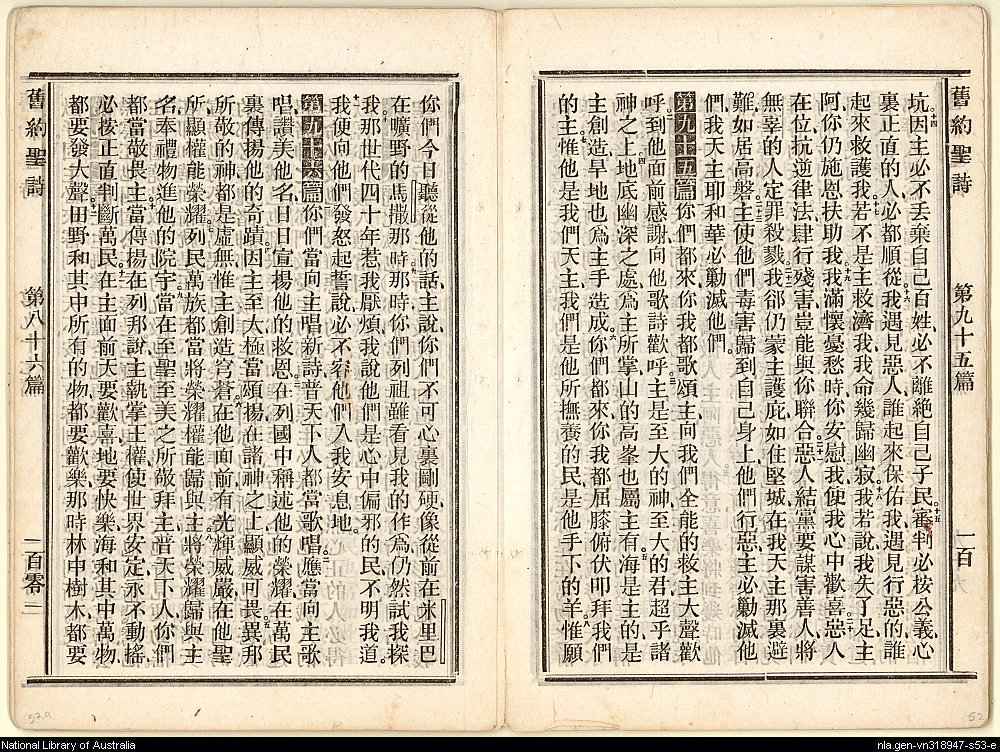 舊約聖詩 第九十五篇 一百
坑因主必不丟棄自己百姓必不離絕自己子民審判必按公義心
裏正直的人必都順從我遇見惡人誰起來保佑我遇見行惡的誰
起來救護我若不是主救濟我我命幾歸幽寂我若說我失了足主
阿你仍施恩扶助我我滿懷憂愁時你安慰我使我心中歡喜惡人
在位抗逆律法肆行殘害豈能與你聯合惡人結黨要謀害善人將
無辜的人定罪殺戮我卻仍蒙主護庇如住堅城在我天主那裏避
難如居高磐主使他們毒害歸到自己身上他們行惡主必勦滅他
們我天主耶和華必勦滅他們
第九十五篇你們都來你我都歌頌主向我們全能的救主大聲歡
呼到他面前感謝向他歌詩歡呼主是至大的神至大的君超乎諸
神之上地底幽深之處為主所掌山的高峯也屬主有海是主的是
主創造旱地也為主手造成你們都來你我都屈膝俯伏叩拜我們
的主惟他是我們天主我們是他所撫養的民是他手下的羊惟願
你們今日聽從他的話主說你們不可心裏剛硬像從前在米里巴
在曠野的馬撒那時那時你們列祖雖看見我的作為仍然試我探
我那世代四十年惹我厭煩我說他們是心中偏邪的民不明我道
我便向他們發怒起誓說必不容他們入我安息地
第九十六篇你們當向主唱新詩普天下人都當歌唱應當向主歌
唱讚美他名日日宣揚他的救恩在列國中稱述他的榮耀在萬民
裏傳揚他的奇蹟因主至大極當頌揚在諸神之上顯威可畏異邦
所敬的神都是虛無惟主創造穹蒼在他面前有光輝威嚴在他聖
所顯權能榮耀列民萬族都當將榮耀權能歸與主將榮耀歸與主
名奉禮物進他的院宇當在至聖至美之所敬拜主普天下人你們
都當敬畏主當傳揚在列邦說主執掌王權使世界安定永不動搖
必按正直判斷萬民在主面前天要歡喜地要快樂海和其中萬物
都要發大聲田野和其中所有的物都要歡樂那時林中樹木都要
舊約聖詩 第八十六篇 一百零二
52a
52
National Library of Australia
nla.gen-vn318947-s53-e